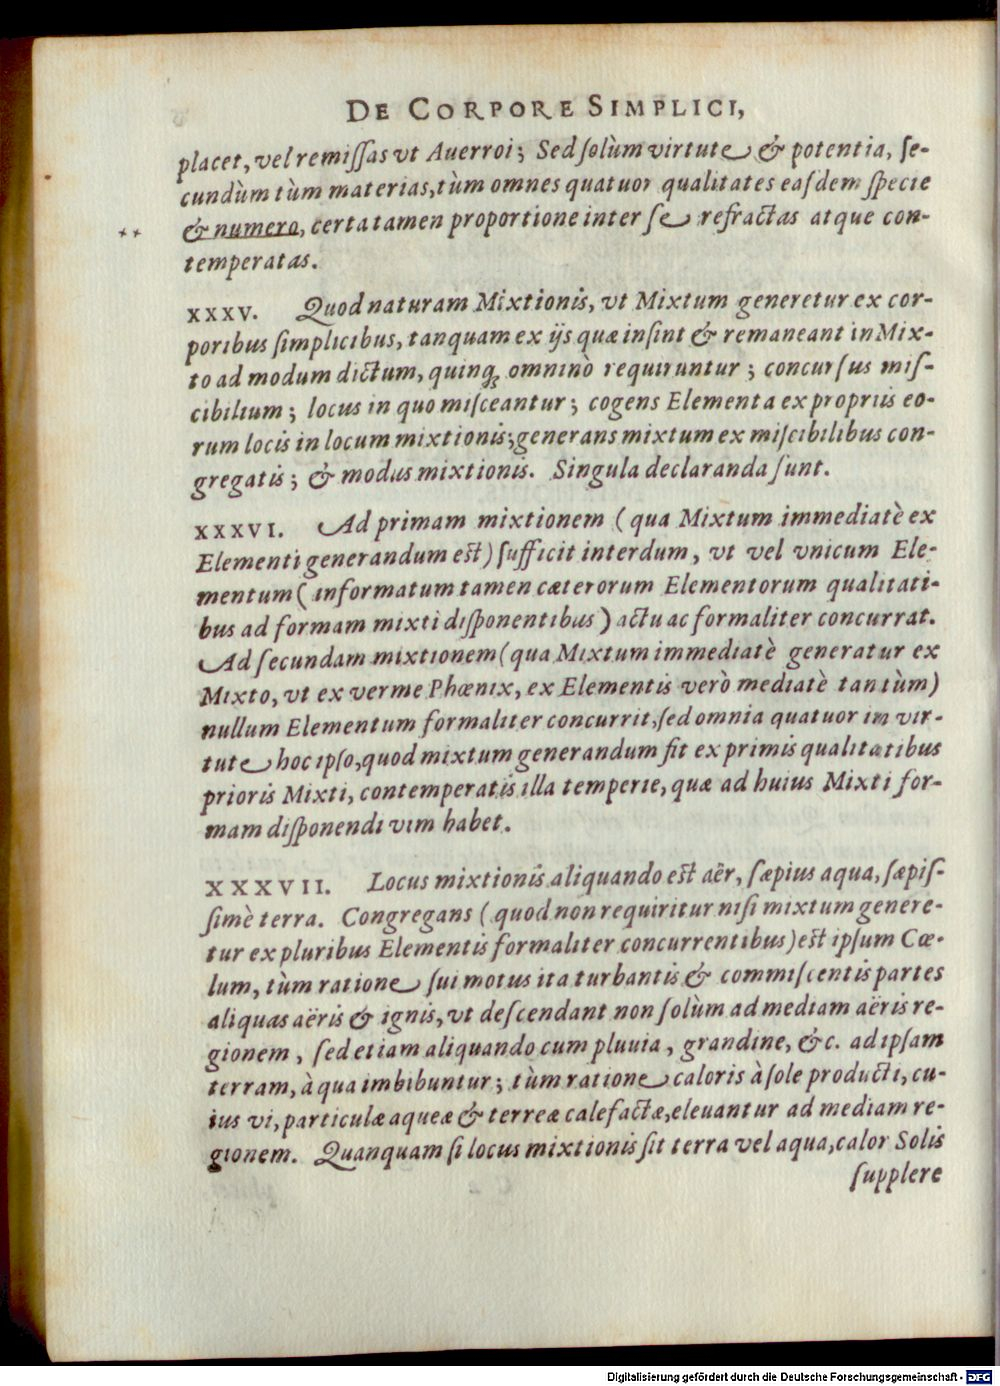 DE CORPORE SIMPLICI,
placet, vel remiſſas vt Auerroi; Sed ſolùm virtute & potentia, ſe-
cundùm tùm materias, tùm omnes quatuor qualitates eaſdem ſpecie
& numero, certa tamen proportione inter ſe refractas atque con-
temperatas.
XXXV. Quod naturam Mixtionis, vt Mixtum generetur ex cor-
poribus ſimplicibus, tanquam ex ijs quæ inſint & remaneant in Mix-
to ad modum dictum, quinq; omninò requiruntur; concurſus miſ-
cibilium; locus in quo miſceantur; cogens Elementa ex propriis eo-
rum locis in locum mixtionis; generans mixtum ex miſcibilibus con-
gregatis; & modus mixtionis. Singula declaranda ſunt.
XXXVI. Ad primam mixtionem (qua Mixtum immediatè ex
Elementi generandum est) ſufficit interdum, vt vel vnicum Ele-
mentum (informatum tamen cæterorum Elementorum qualitati-
bus ad formam mixti diſponentibus) actu ac formaliter concurrat.
Ad ſecundam mixtionem (qua Mixtum immediatè generatur ex
Mixto, vt ex verme Phœnix, ex Elementis verò mediatè tantùm)
nullum Elementum formaliter concurrit, ſed omnia quatuor in vir-
tute hoc ipſo, quod mixtum generandum fit ex primis qualitatibus
prioris Mixti, contemperatis illa temperie, quæ ad huius Mixti for-
mam diſponendi vim habet.
XXXVII. Locus mixtionis aliquando est aër, ſæpius aqua, ſæpiſ-
ſimè terra. Congregans (quod non requiritur niſi mixtum genere-
tur ex pluribus Elementis formaliter concurrentibus) est ipſum Cœ-
lum, tùm ratione ſui motus ita turbantis & commiſcentis partes
aliquas aëris & ignis, vt deſcendant non ſolùm ad mediam aëris re-
gionem, ſed etiam aliquando cum pluuia, grandine, &c. ad ipſam
terram, à qua imbibuntur; tùm ratione caloris à ſole producti, cu-
ius vi, particulæ aqueæ & terreæ calefactæ, eleuantur ad mediam re-
gionem. Quanquam ſi locus mixtionis ſit terra vel aqua, calor Solis
ſupplere
Digitalisierung gefördert durch die Deutsche Forschungsgemeinschaft - DFG